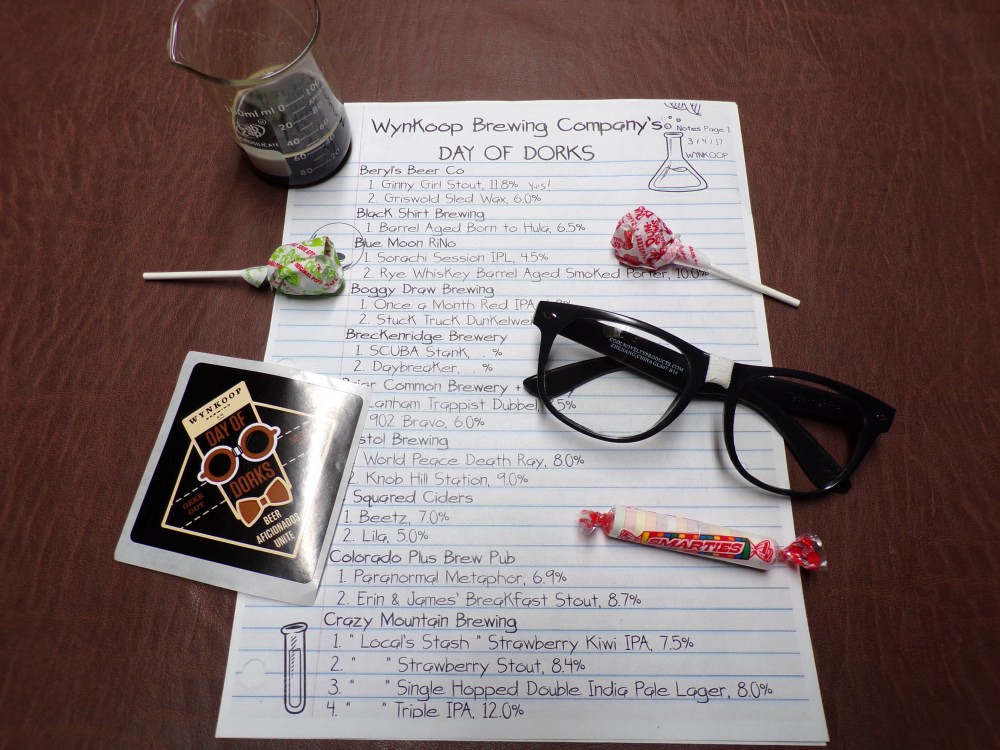 WynKoop Brewing Company's
DAY OF DORKS
Notes Page 1
3/4/17
WYNKOOP
Beryl's Beer Co
1. Ginny Girl Stout, 11.8% Yes!
2. Griswold Sled Wax, 6.0%
Black Shirt Brewing
1. Barrel Aged Born to Hula, 6.5%
Blue Moon RiNo
1. Sorachi Session IPL, 4.5%
2. Rye Whiskey Barrel Aged Smoked Porter, 10.0%
Boggy Draw Brewing
1. Once a Month Red IPA
2. Stuck Truck Dunkelwei
Breckenridge Brewery
1. SCUBA Stank, . %
2. Daybreaker, . %
Briar Common Brewery +
Lanham Trappist Dubbel, .5%
902 Bravo, 6.0%
istol Brewing
World Peace Death Ray, 8.0%
2. Knob Hill Station, 9.0%
Squared Ciders
1. Beetz, 7.0%
2. Lila, 5.0%
Colorado Plus Brew Pub
1. Paranormal Metaphor, 6.9%
2. Erin & James' Breakfast Stout, 8.7%
Crazy Mountain Brewing
1. " Local's Stash " Strawberry Kiwi IPA, 7.5%
2. " " Strawberry Stout, 8.4%
3. " " Single Hopped Double India Pale Lager, 8.0%
4. " " Triple IPA, 12.0%
WYNKOOP
BREWING
DAY OF
DORKS
GEEK
OUT
BEER
AFICIONADOS
UNITE
COOLNOVELTYPRODUCTS.COM
ZHEJIANG, CHINA
SMARTIES
ml
0
100
20
80
40
60
60
40
80
20